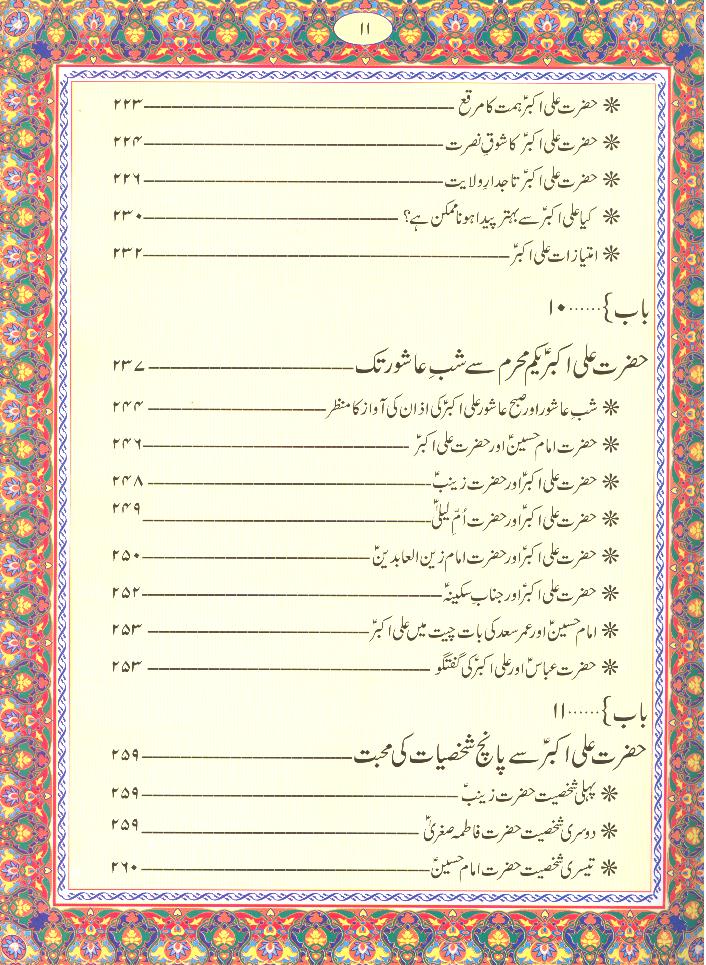 ۱۱
❊ حضرت علی اکبرؑ ہمت کا مرقع ۲۲۳
❊ حضرت علی اکبرؑ کا شوقِ نصرت ۲۲۴
❊ حضرت علی اکبرؑ تاجدارِ ولایت ۲۲۶
❊ کیا علی اکبرؑ سے بہتر پیدا ہونا ممکن ہے؟ ۲۳۰
❊ امتیازات علی اکبرؑ ۲۳۲
باب}......۱۰
حضرت علی اکبرؑ یکم محرم سے شبِ عاشور تک ۲۳۷
❊ شبِ عاشور اور صبح عاشور علی اکبرؑ کی اذان کی آواز کا منظر ۲۴۴
❊ حضرت امام حسینؑ اور حضرت علی اکبرؑ ۲۴۶
❊ حضرت علی اکبرؑ اور حضرت زینبؑ ۲۴۸
❊ حضرت علی اکبرؑ اور حضرت اُمِّ لیلیٰؑ ۲۴۹
❊ حضرت علی اکبرؑ اور حضرت امام زین العابدینؑ ۲۵۰
❊ حضرت علی اکبرؑ اور جناب سکینہؑ ۲۵۲
❊ امام حسینؑ اور عمر سعد کی بات چیت میں علی اکبرؑ ۲۵۳
❊ حضرت عباسؑ اور علی اکبرؑ کی گفتگو ۲۵۳
باب}......۱۱
حضرت علی اکبرؑ سے پانچ شخصیات کی محبت ۲۵۹
❊ پہلی شخصیت حضرت زینبؑ ۲۵۹
❊ دوسری شخصیت حضرت فاطمہ صغریٰؑ ۲۵۹
❊ تیسری شخصیت حضرت امام حسینؑ ۲۶۰